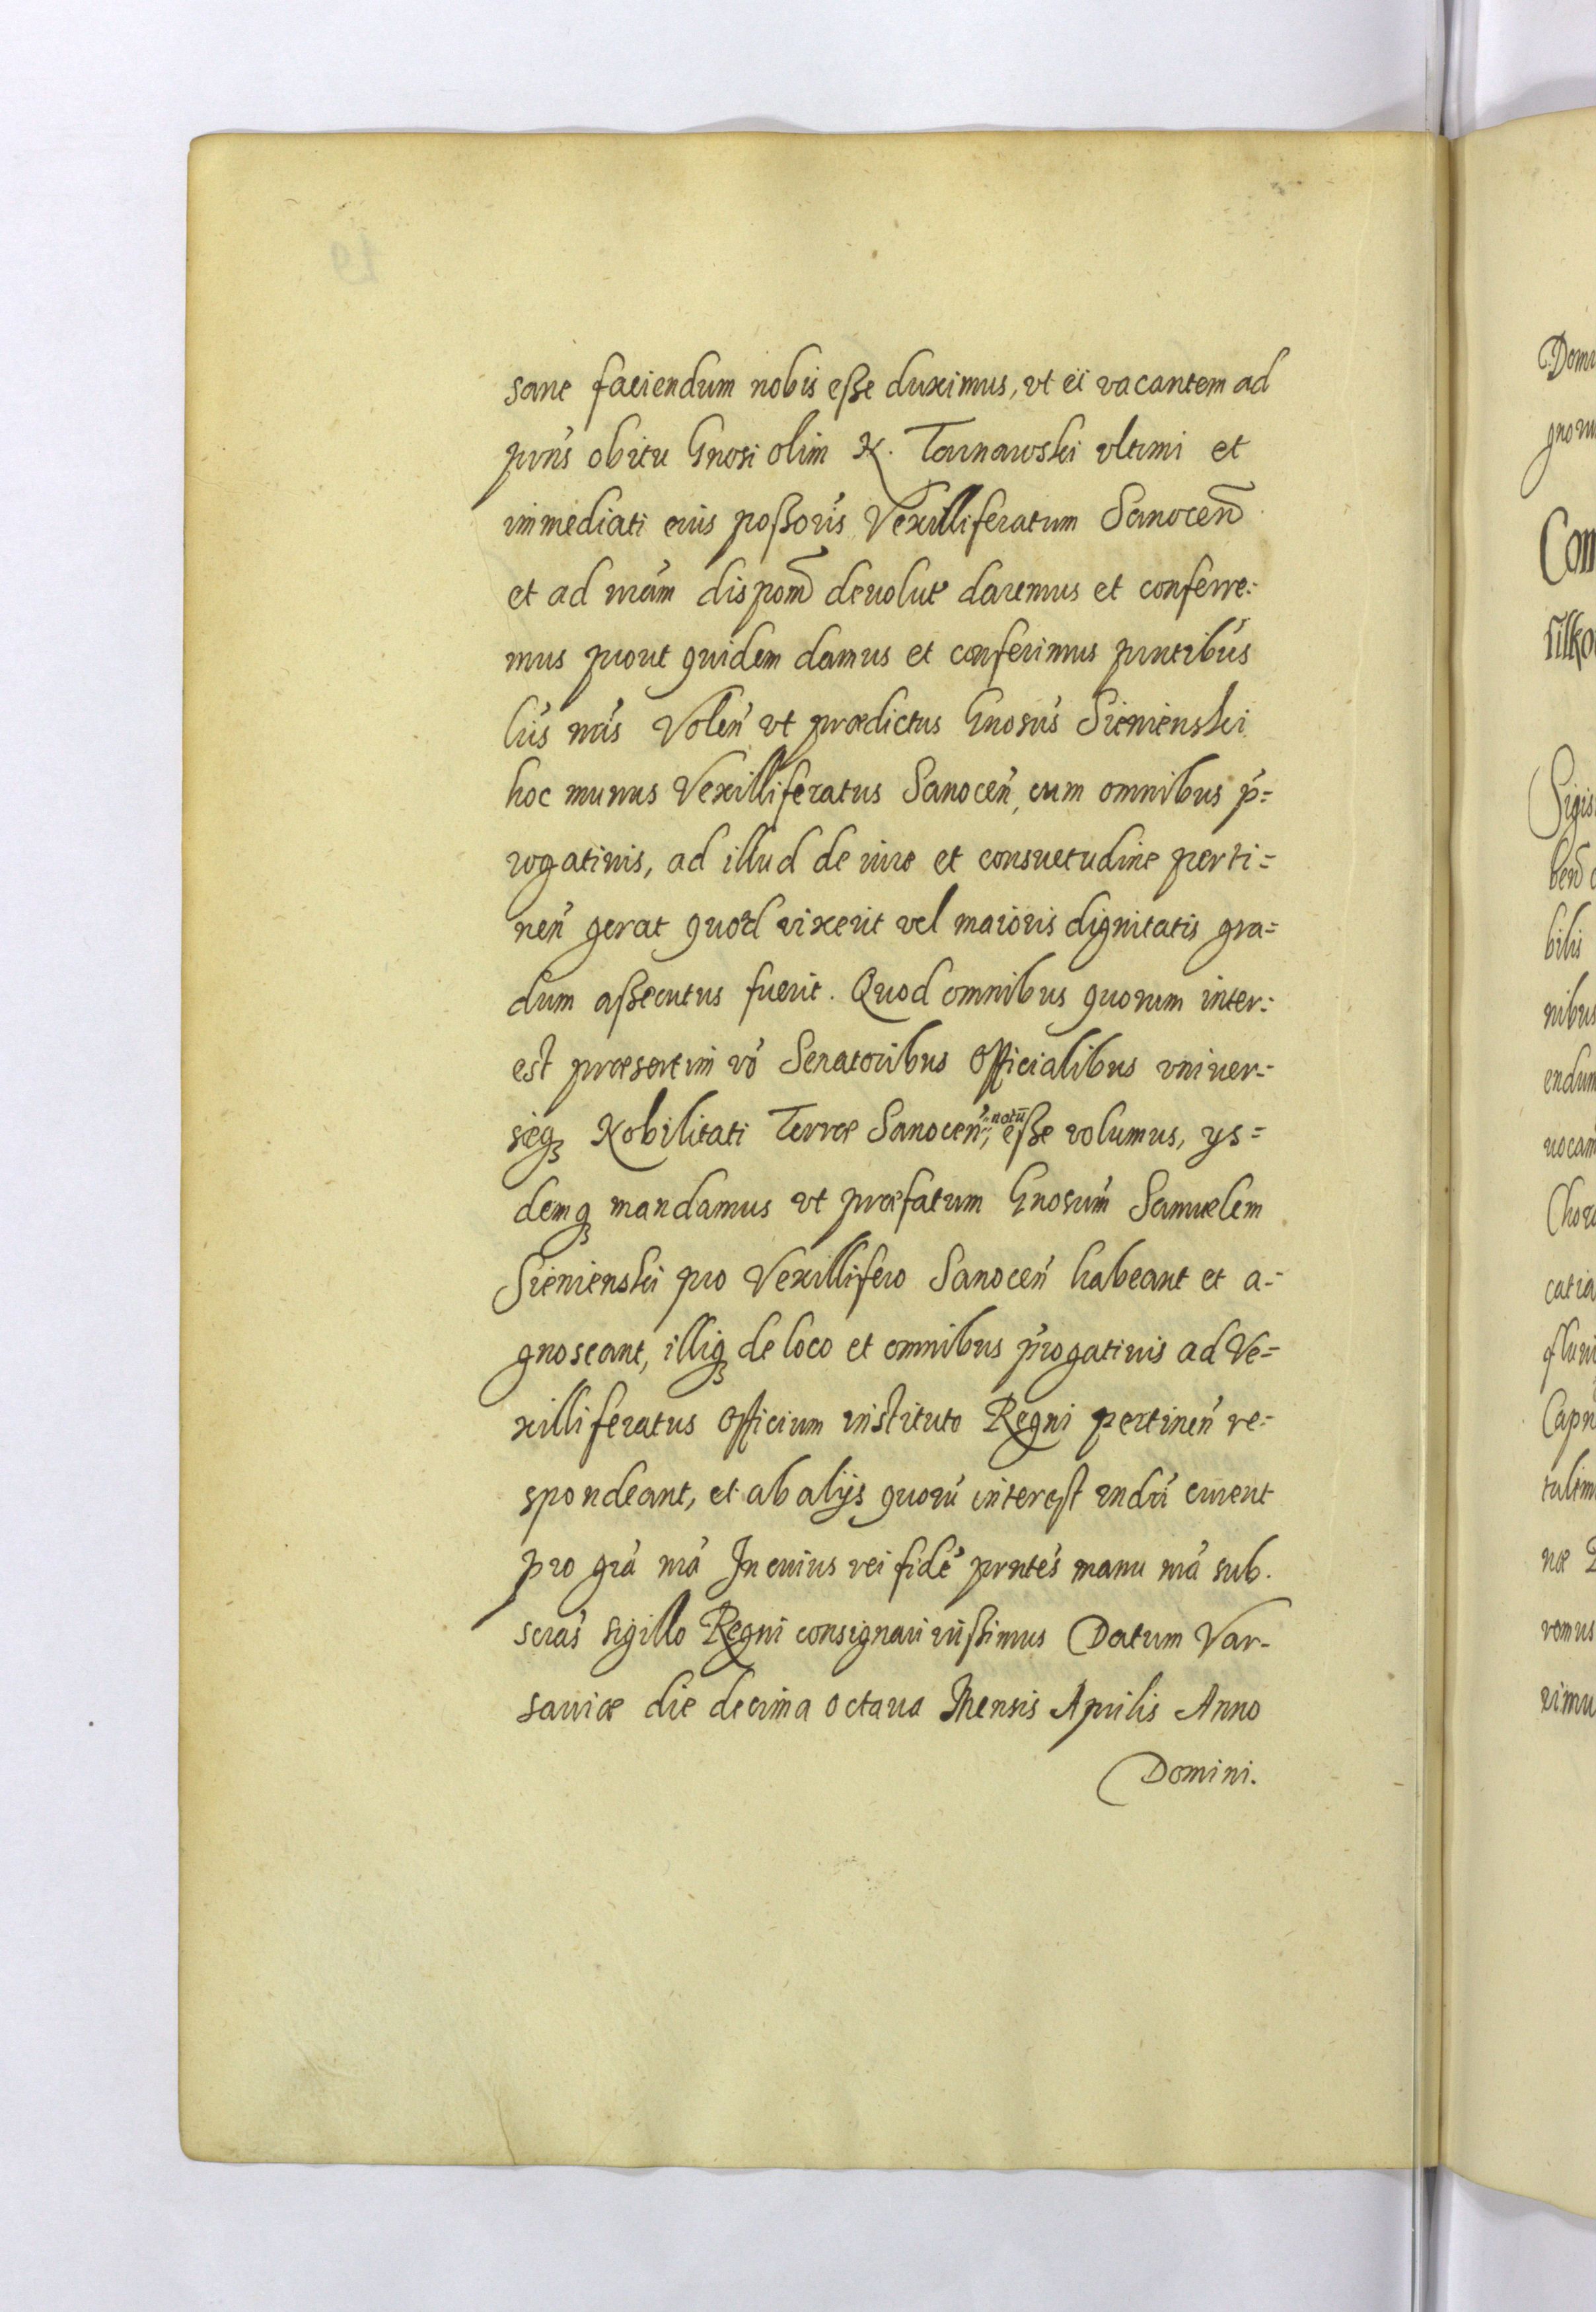 sane faciendum nobis eße duximus, vt ei vacantem ad
prns obitu Gnosi olim N. Tarnawski vltimi et
immediati eius poßoris Vexilliferatum Sanocen
et ad nram dispom deuolut daremus et conferre=
mus prout quidem damus et conferimus prntibus
lris nris Volen vt prædictus Gnosus Sienienski
hoc munus Vexilliferatus Sanocen, cum omnibus p=
rogatiuis, ad illud de iure et consuetudine perti=
nen gerat quoad vixerit vel maioris dignitatis gra=
dum aßecutus fuerit. Quod omnibus quorum inter=
est præsertim vo Senatoribus Officialibus vniuer=
sæq Nobilitati Terræ Sanocen, notu eße volumus, ys=
demq mandamus vt præfatum Gnosum Samuelem
Sienienski pro Vexillifero Sanocen habeant et a=
gnoscant, illiq de loco et omnibus progatiuis ad Ve=
xilliferatus Officium instituto Regni pertinen re=
spondeant, et ab alijs quoru interest rnderi curent
pro gra nra In cuius rei fide prntes manu nra sub.
scras sigillo Regni consignari iußimus Datum Var-
sauiæ die decima octaua Mensis Aprilis Anno
Domini.